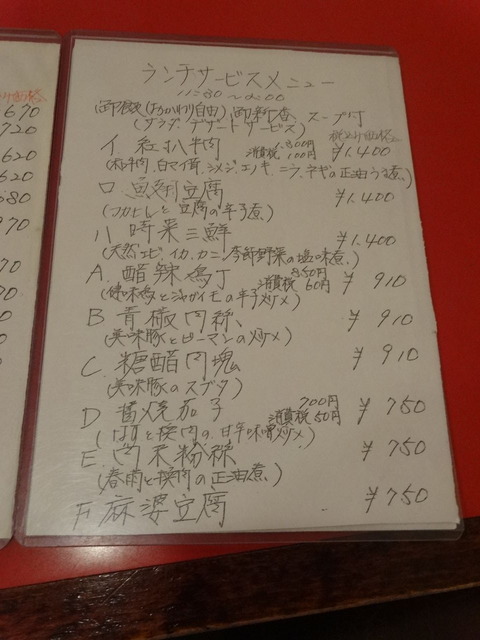 ランチサービスメニュー
11:30～2:00
御飯(おかわり自由) 御新香 スープ付
(サラダ、デザートサービス) 税込み価格
イ. 紅扒牛肉 1.300円 消費税 100円 ¥1.400
(和牛肉、白マイ茸、シメジ、エノキ、ニラ、ネギの正油うま煮)
ロ. 魚翅豆腐 ¥1.400
(フカヒレと豆腐の辛子煮)
ハ 時菜三鮮 ¥1.400
(天然エビ、イカ、カニ、季節野菜の塩味煮)
A. 醋辣鶏丁 850円 消費税 60円 ¥ 910
(健味鶏とジャガイモの辛子炒メ)
B 青椒肉絲 ¥ 910
(美味豚とピーマンの炒メ)
C. 糖醋肉塊 ¥ 910
(美味豚のスブタ)
D 醤焼茄子 700円 消費税 50円 ¥ 750
(なすと挽肉の甘味噌炒メ)
E. 肉末粉絲 ¥ 750
(春雨と挽肉の正油煮)
F. 麻婆豆腐 ¥ 750
670
720
620
620
680
970
70